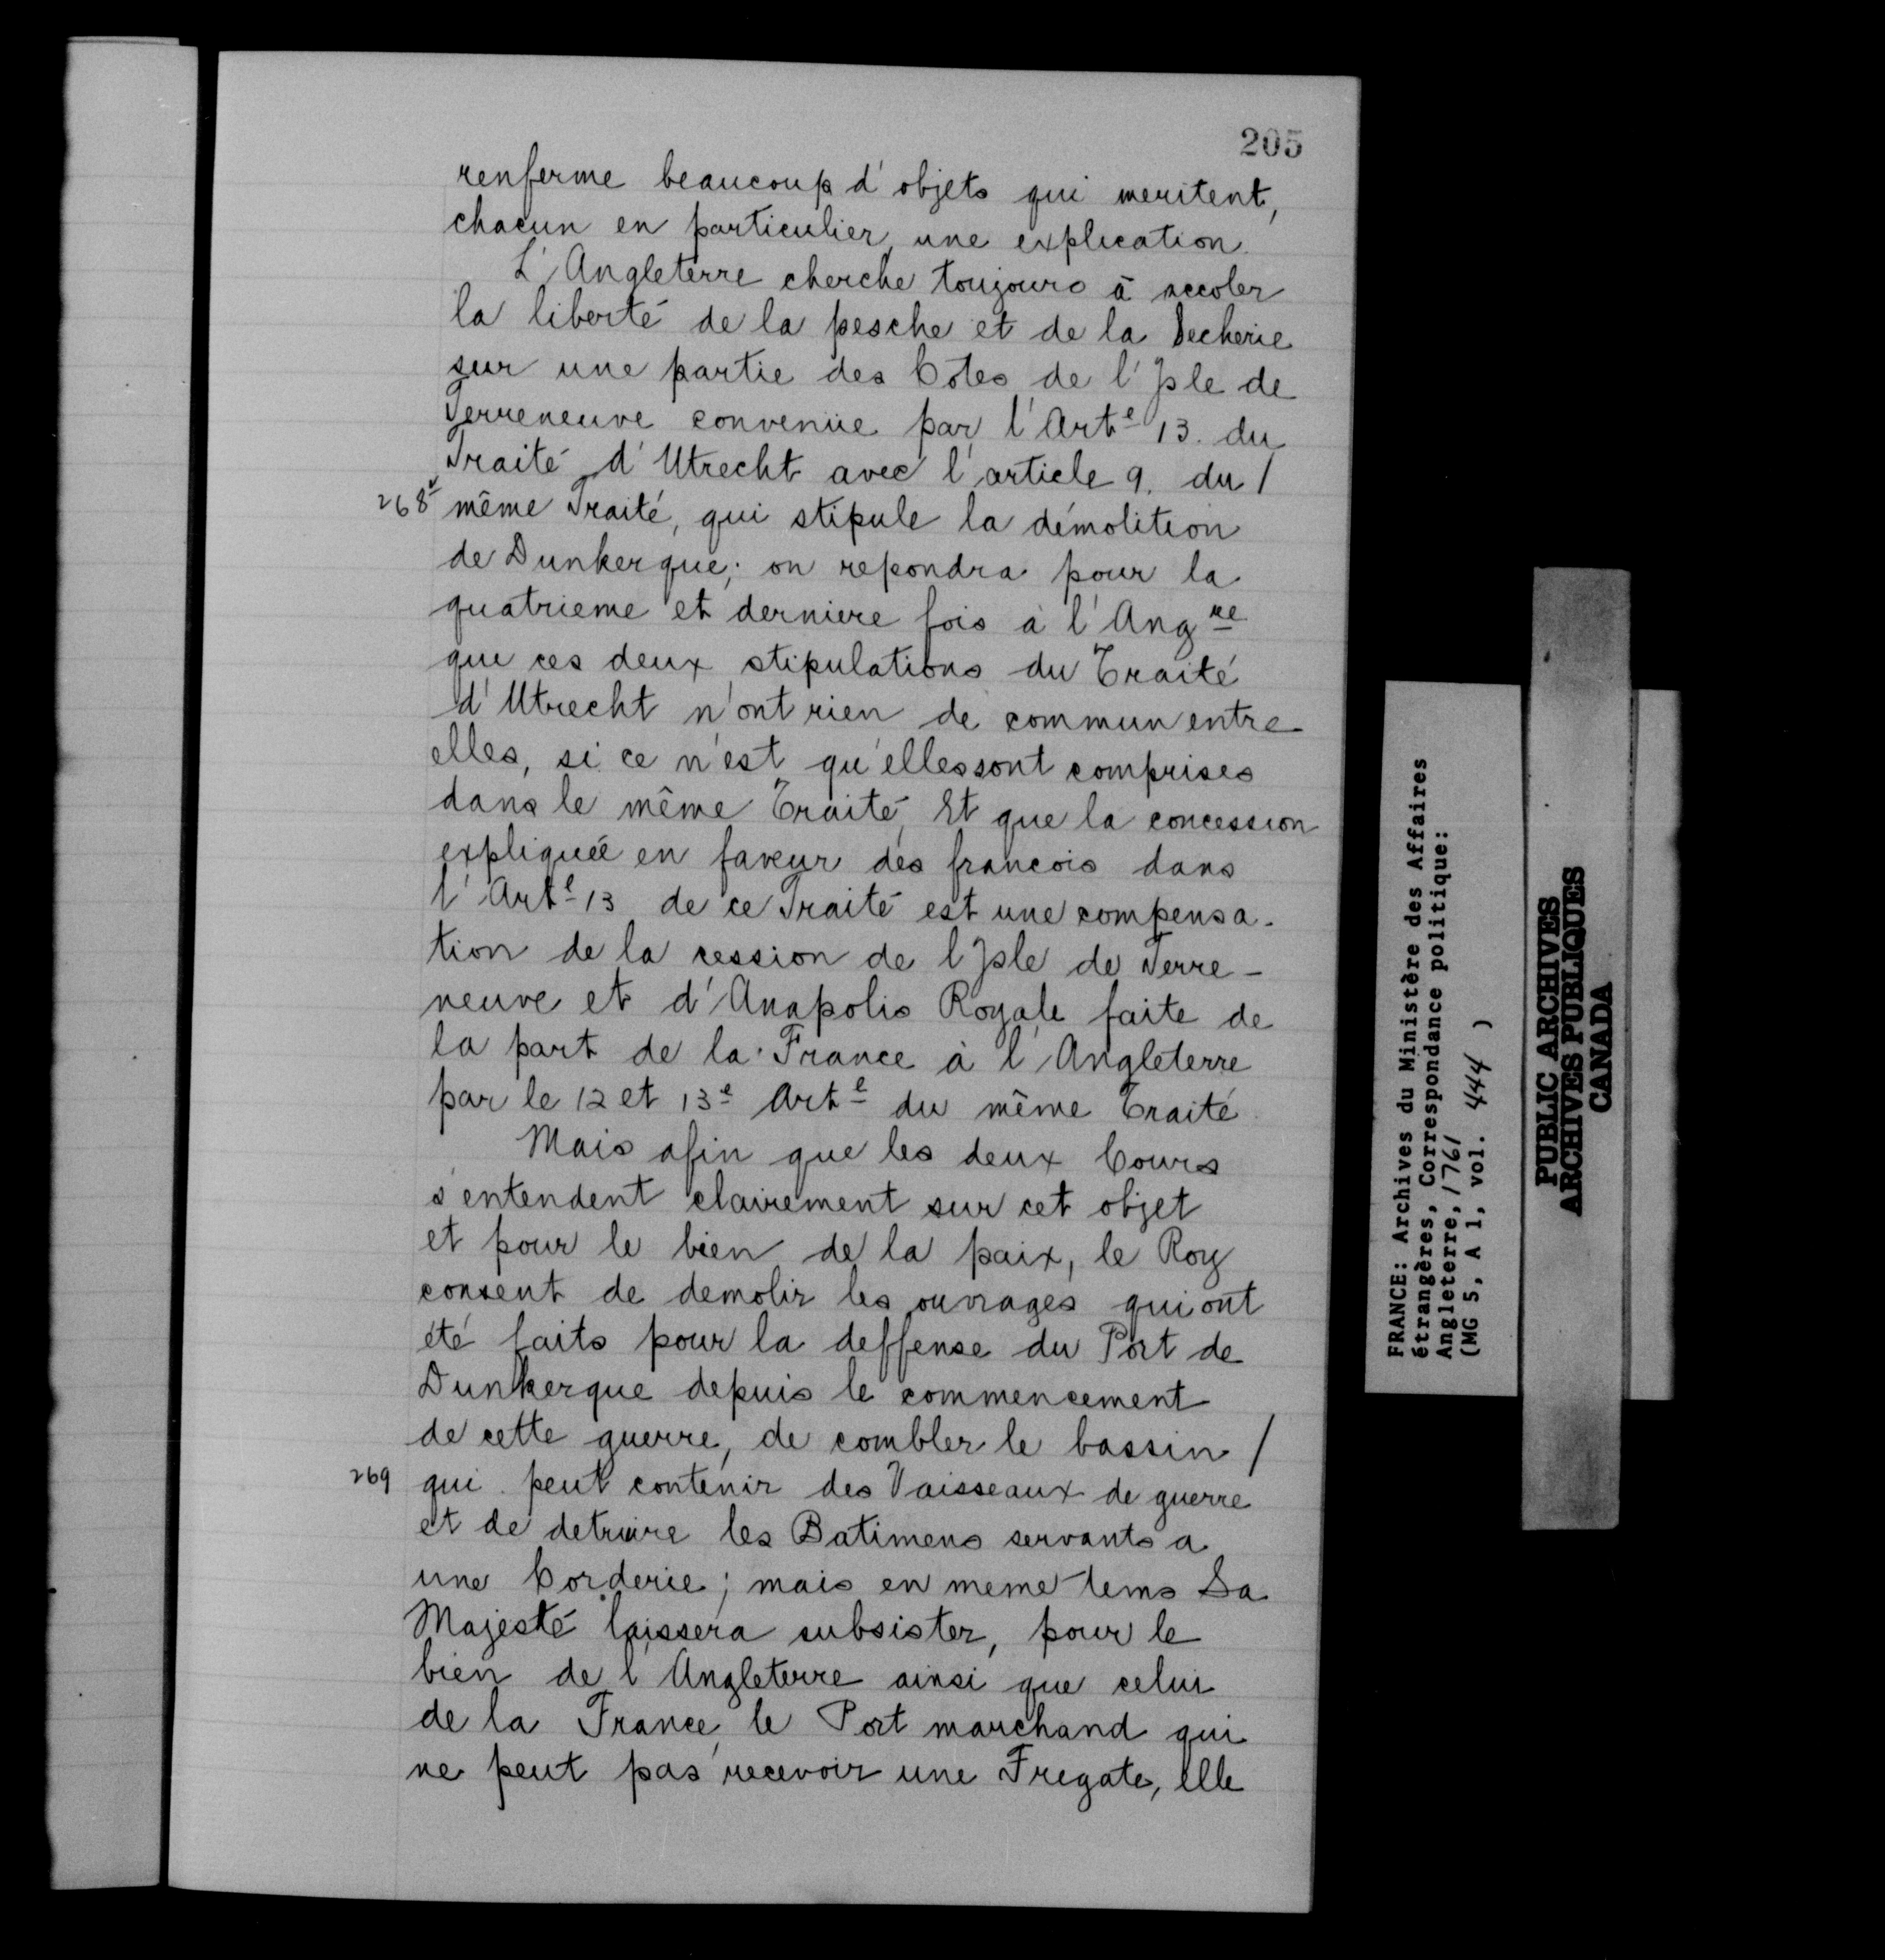 205
renferme beaucoup d'objets qui meritent,
chacun en particulier, une explication.
L'Angleterre cherche toujours à accoler
la liberté de la pesche et de la Secherie
sur une partie des Cotes de l'Isle de
Terreneuve convenüe par l'Arte 13. du
Traité d'Utrecht avec l'article 9. du /
268v même Traité, qui stipule la démolition
de Dunkerque; on repondra pour la
quatrieme et derniere fois à l'Angre
que ces deux stipulations du Traité
d'Utrecht n'ont rien de commun entre
elles, si ce n'est qu'elles sont comprises
dans le même Traité, Et que la concession
expliquée en faveur des francois dans
l'Arte 13 de ce Traité est une compensa-
tion de la cession de l'Isle de Terre-
neuve et d'Anapolis Royale faite de
la part de la France à l'Angleterre
par le 12 et 13e Arte du même Traité.
Mais afin que les deux Cours
s'entendent clairement sur cet objet
et pour le bien de la paix, le Roy
consent de demolir les ouvrages qui ont
été faits pour la deffense du Port de
Dunkerque depuis le commencement
de cette guerre, de combler le bassin /
269 qui peut contenir des Vaisseaux de guerre
et de detruire les Batimens servants a
une Corderie; mais en meme tems Sa
Majesté laissera subsister, pour le
bien de l'Angleterre ainsi que celui
de la France, le Port marchand qui
ne peut pas recevoir une Fregate, elle
FRANCE: Archives du Ministère des Affaires
étrangères, Correspondance politique:
Angleterre, 1761
(MG 5, A 1, vol. 444 )
PUBLIC ARCHIVES
ARCHIVES PUBLIQUES
CANADA